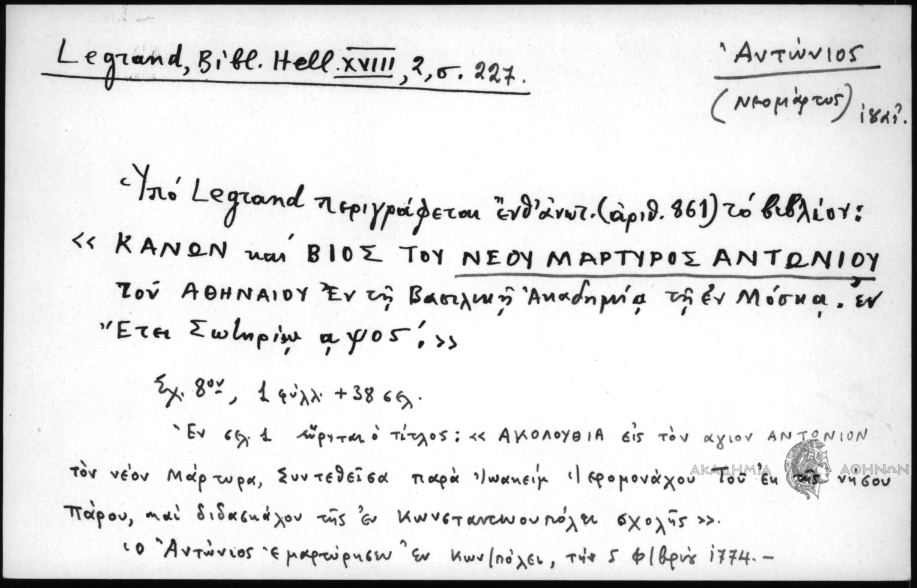 Legrand, Bibl. Hell. XVIII, 2, σ. 227.
Ἀντώνιος
(Νεομάρτυς)
Ὑπό Legrand περιγράφεται ἔνθ' ἀνωτ. (ἀριθ. 861) τό βιβλίον:
« ΚΑΝΩΝ καί ΒΙΟΣ ΤΟΥ ΝΕΟΥ ΜΑΡΤΥΡΟΣ ΑΝΤΩΝΙΟΥ
τοῦ ΑΘΗΝΑΙΟΥ Ἐν τῇ Βασιλικῇ Ἀκαδημίᾳ τῇ ἐν Μόσκᾳ. ἐν
Ἔτει Σωτηρίῳ αψος'. »
Σχ. 8ον, 1 φύλλ. + 38 σελ.
Ἐν σελ. 1 εὕρηται ὁ τίτλος: « ΑΚΟΛΟΥΘΙΑ εἰς τὸν αγιον ΑΝΤΩΝΙΟΝ
τὸν νέον Μάρτυρα, Συντεθεῖσα παρὰ Ἰωακείμ Ἱερομονάχου Τοῦ ἐκ τῆς νήσου
Πάρου, καί διδασκάλου τῆς ἐν Κωνσταντινουπόλει σχολῆς ».
Ὁ Ἀντώνιος ἐμαρτύρησεν ἐν Κων/πόλει, τήν 5 Φ/βρίου 1774. –
ΑΚΑΔΗΜΙΑ ΑΘΗΝΩΝ